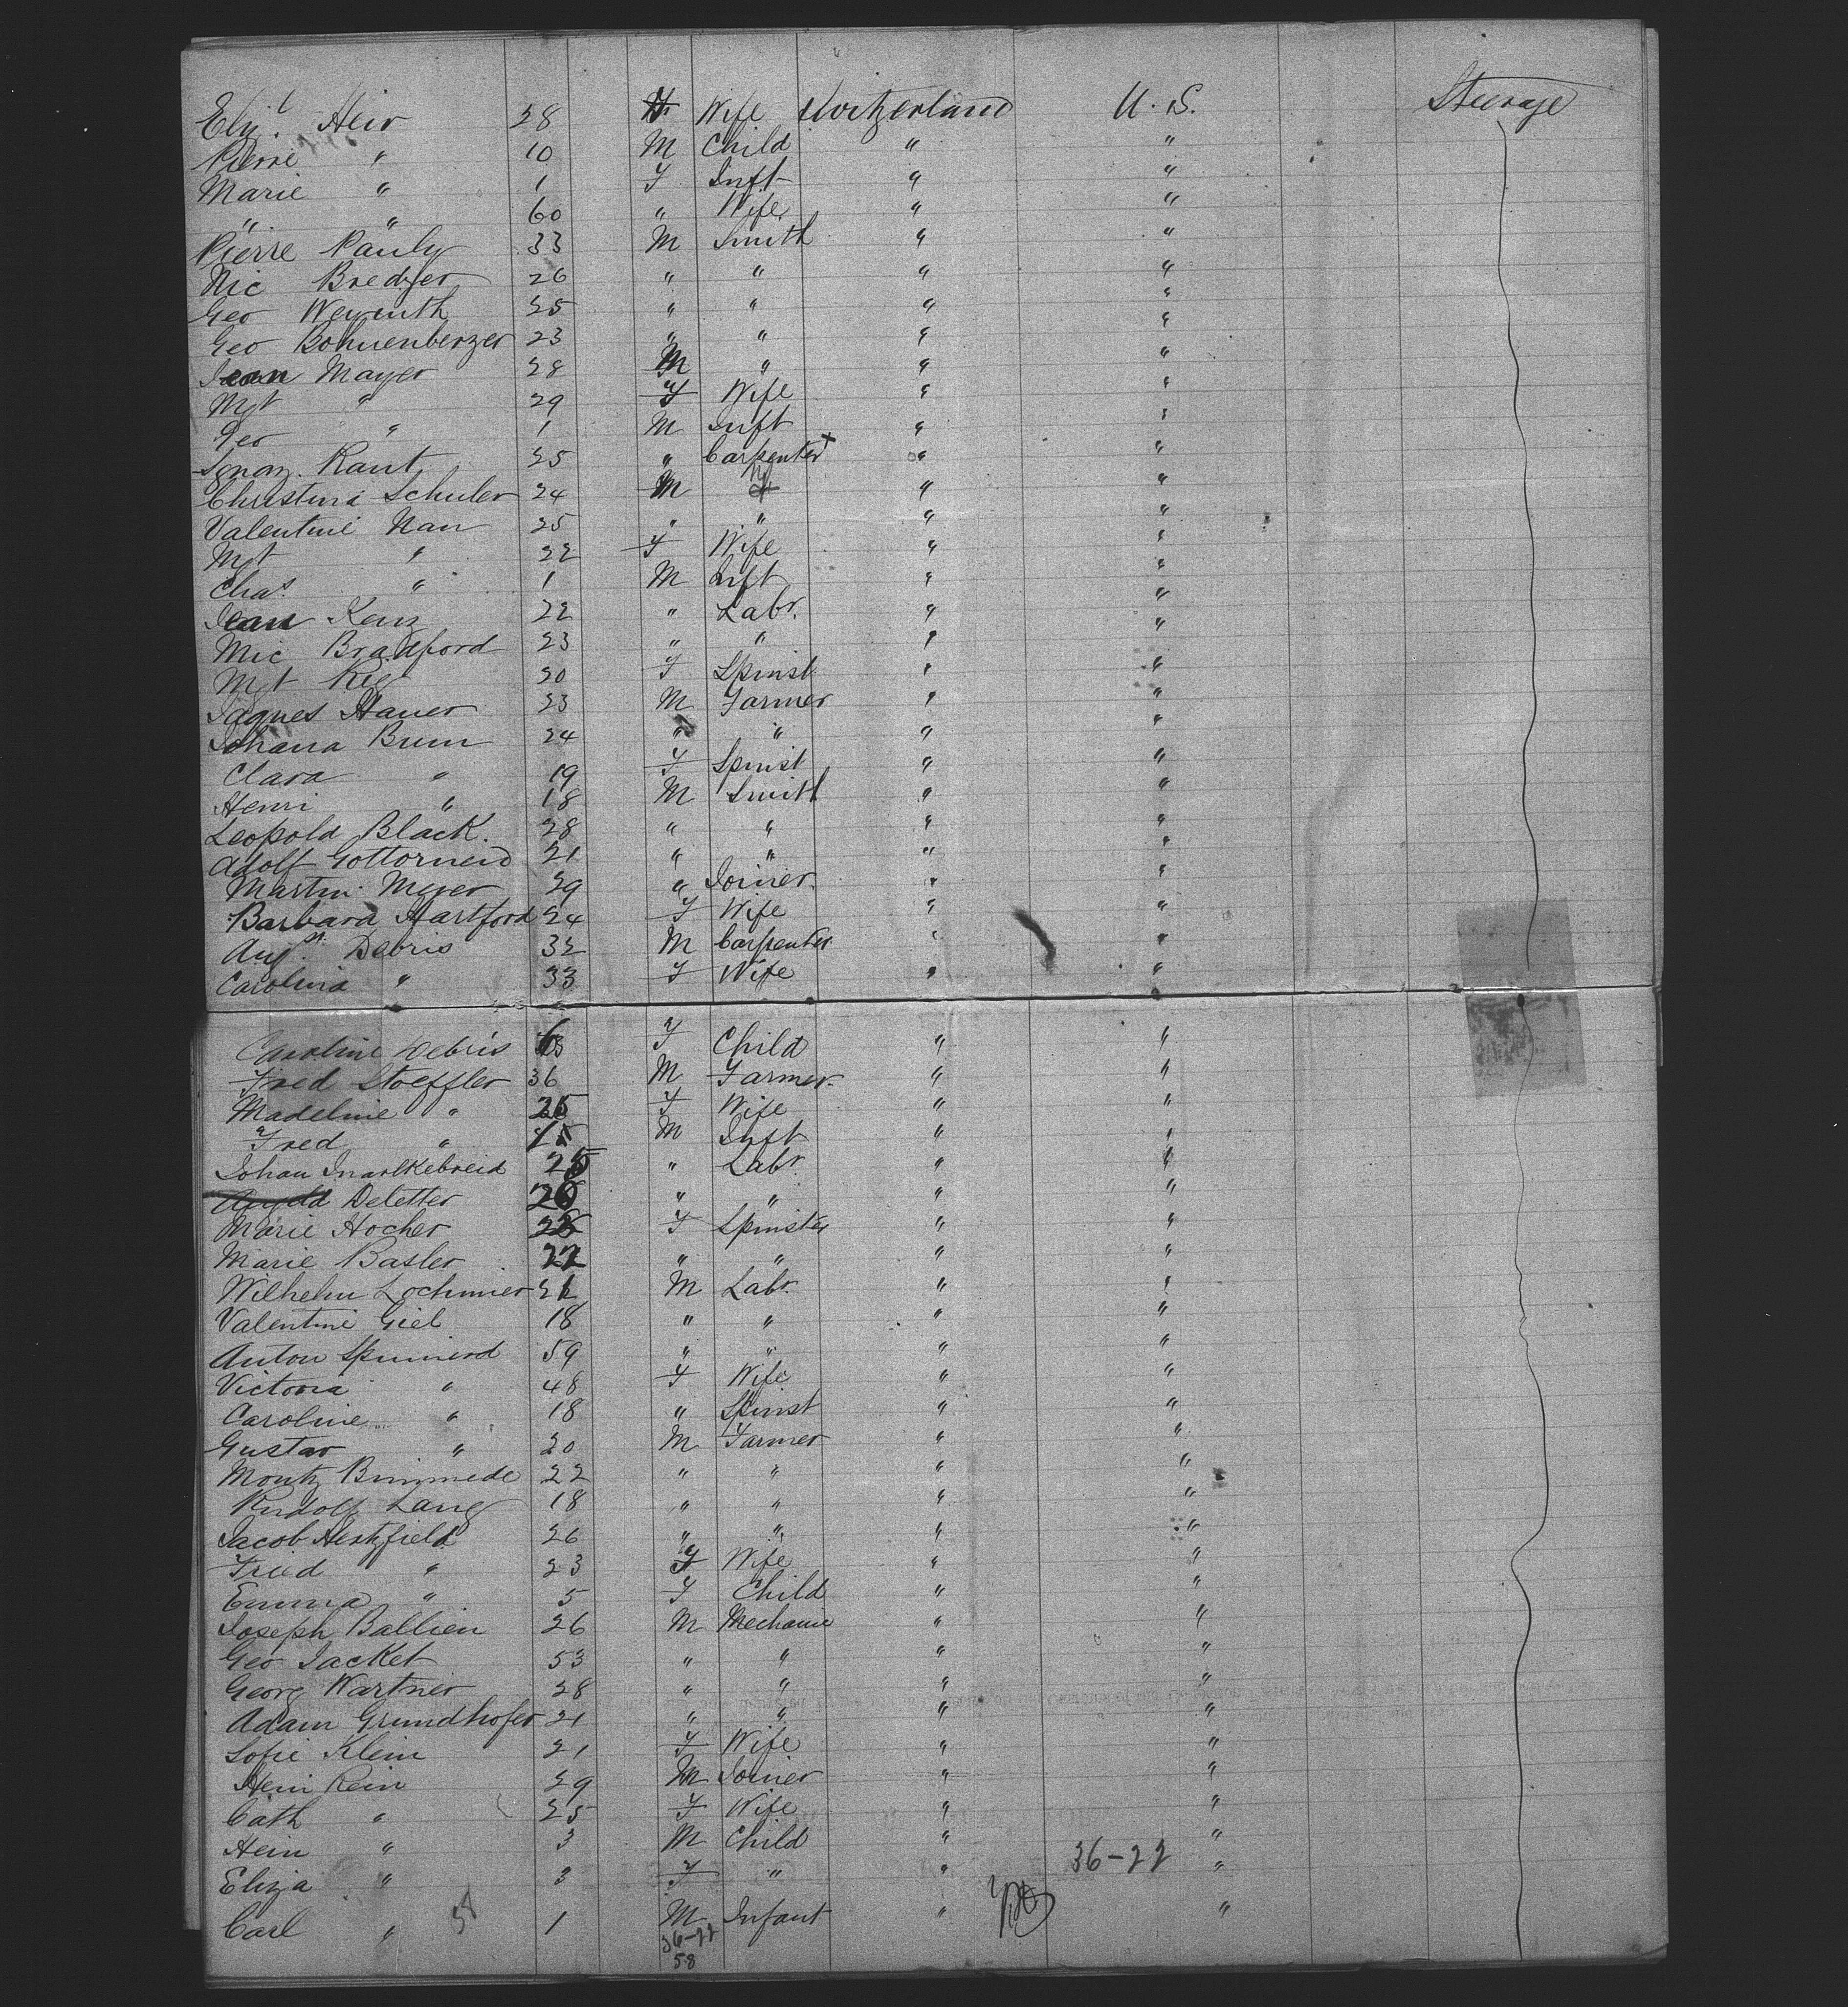 Eliz.t Heir 28 F Wife Switzerland U.S. Steerage
Pierre " 10 M Child " "
Marie " 1 F Inft " "
" " 60 " Wife " "
Pierre Pauly 33 M Smith " "
Nic Bredyer 26 " " " "
Geo Weyruth 25 " " " "
Geo Bohnenberger 23 " " " "
Jean Mayer 28 M " " "
Mgt " 29 F Wife " "
Geo " 1 M Inft " "
Ignaz. Rant 25 " Carpenter " "
Christina Schuler 24 M " "
Valentine Nan 25 " " " "
Mgt " 22 F Wife " "
Chas. " 1 M Inft " "
Jean Kenz 22 " Labr. " "
Mic Bradford 23 " " " "
Mgt 20 F Spinst " "
Jaques Hauer 23 M Farmer " "
Johana Brun 24 " " " "
Clara " 19 F Spinst " "
Henri " 18 M Smith " "
Leopold Black. 28 " " " "
Adolf Gottorneid 21 " " " "
Martin Meyer 29 " Joiner. " "
Barbara Hartford 24 F Wife " "
Augst. Debris 32 M Carpenter " "
Carolina " 33 F Wife " "
Caroline Debris F Child " "
Fred Stoeffler 36 M Farmer " "
Madeline " 25 F Wife " "
Fred " M Inft " "
Johan 25 " Labr. " "
Deletter 26 " " " "
Marie Hocher 22 F Spinster " "
Marie Basler 22 " " " "
Wilhelm Lochmier M Labr. " "
Valentine Giel 18 " " " "
Anton Spunierd 59 " " " "
Victoria " 48 F Wife " "
Caroline " 18 " Spinst " "
Gustav " 20 M Farmer " "
Moritz Bimmede 22 " " " "
Rudolf Lang 18 " " " "
Jacob Hertzfield 26 " " " "
Fried " 23 F Wife " "
Emma " 5 F Child " "
Joseph Ballien 26 M Mechanic " "
Geo Jacket 53 " " " "
Georg Wartner 28 " " " "
Adam Grundhofer 21 " " " "
Sofie Klein 21 F Wife " "
Hein Rein 29 M Joiner " "
Cath " 25 F Wife " "
Hein " 3 M Child " "
Eliza " 3 F " " 36-22 "
Carl " 58 1 M Infant " "
36-22
58